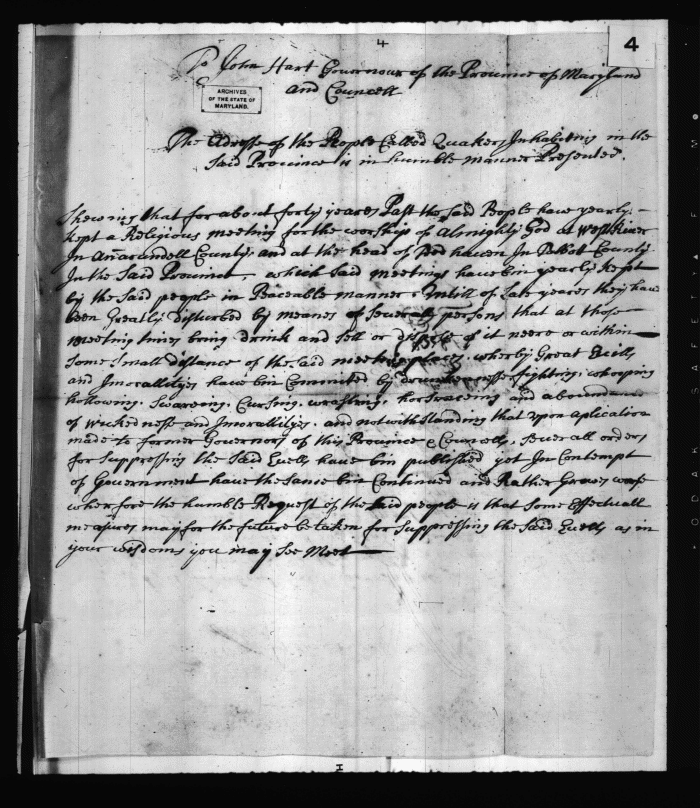 4
4
To John Hart Governour of the Province of Maryland
and Councell
ARCHIVES
OF THE STATE OF
MARYLAND.
The Adresse of the People Called Quakers Inhabiting in the
Said Province is in humble manner Presented.
Shewing that for about forty yeares Past the Said People have yearly
kept a Religious meeting for the worship of Almighty God at West River
In Anarundell County, and at the head of Tred haven In Talbot County
In the Said Province which Said meetings have bin yearly kept
by the Said people in Peaceable manner Untill of Late yeares they have
been Greatly disturbed by meanes of severall persons that at those
meeting times bring drink and sell or dispose of it neere or within
Some Small distance of the Said meeting places. wherby Great Evills
and Imorallityes have bin Commited by fighting. whooping
hollowing. Swareing. Cursing. wrastling. horsraceing and aboundance
of wickednesse and Imorallityes. and notwithstanding that upon aplication
made to former Governors of this Province & Councells, severall orders
for suppressing the Said Evells have bin published yet In Contempt
of Government have the Same bin Continued and Rather Growes worse
wherfore the humble Request of the said people is that Some Effectuall
measures may for the future be taken for suppressing the Said Evells as in
your wisdoms you may See Meet
I
KODAK SAFE